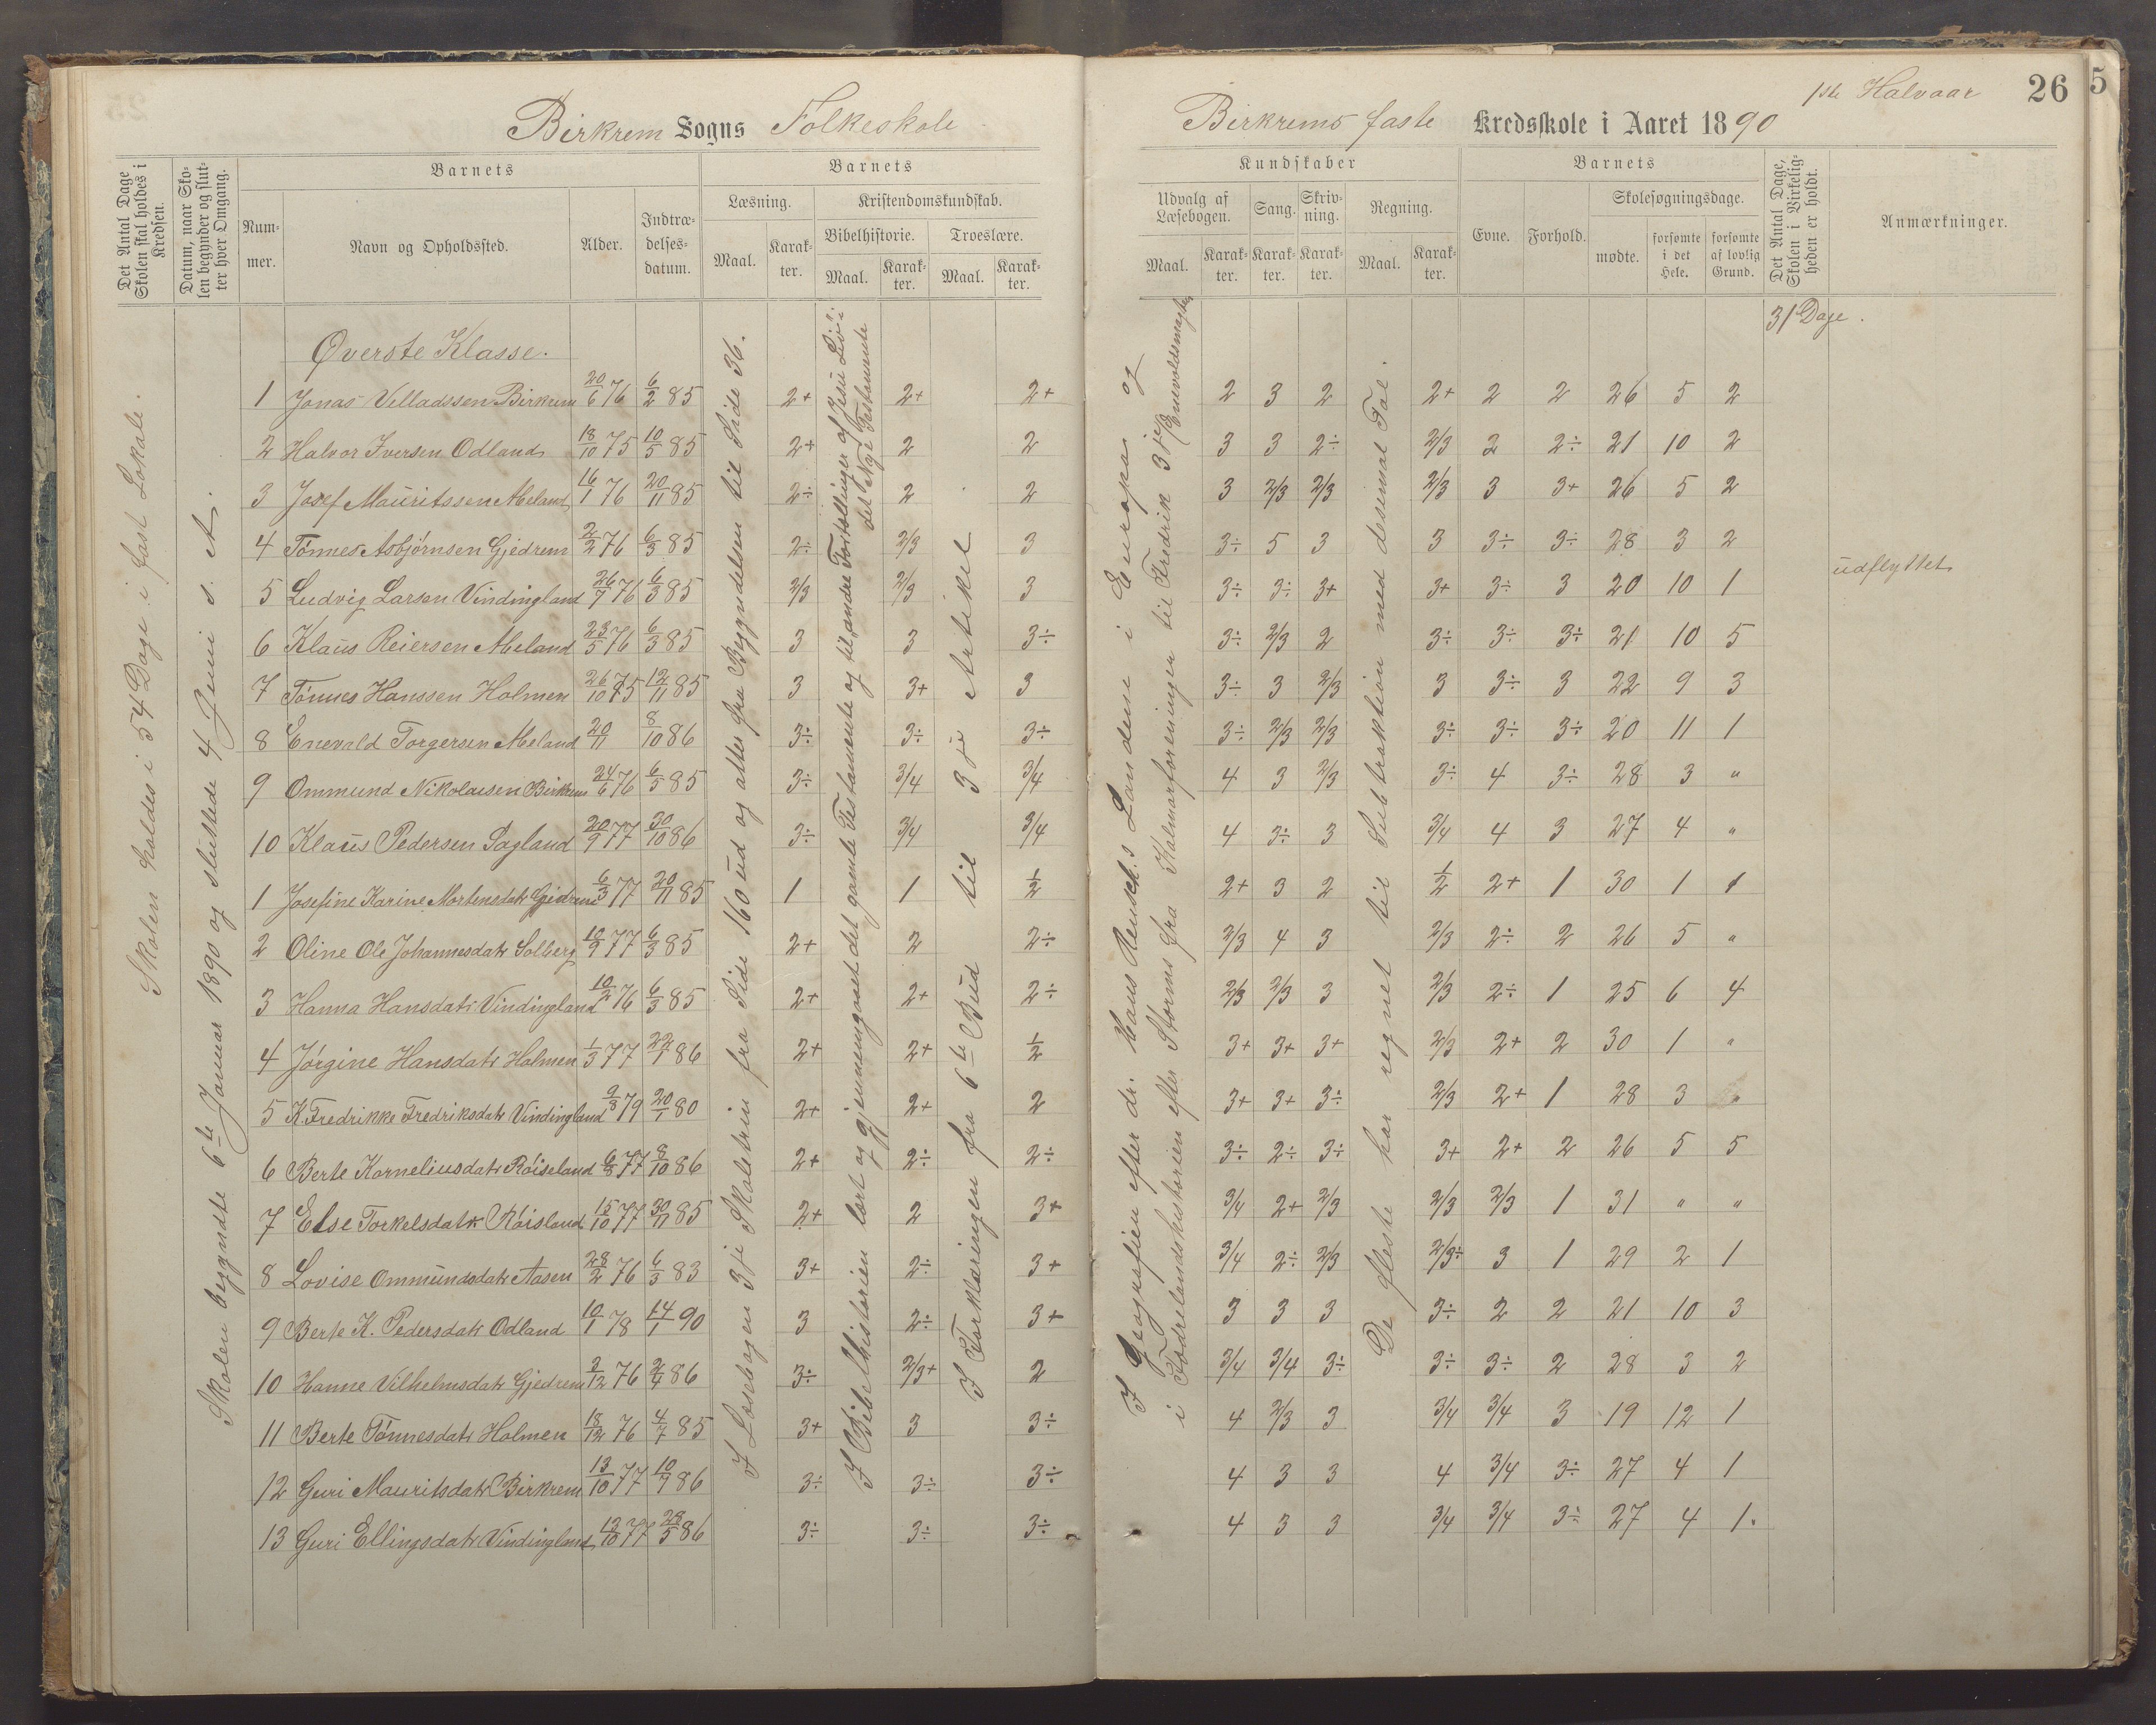 Birkrem Sogns Folkeskole
Birkrems faste Kredsskole i Aaret 1890
1ste Halvaar
26
5
Det Antal Dage Skolen skal holdes i Kredsen.
Datum, naar Skolen begynder og slutter hver Omgang.
Barnets
Nummer.
Navn og Opholdssted.
Alder.
Indtrædelsesdatum.
Barnets
Læsning.
Maal.
Karakter.
Kristendomskundskab.
Bibelhistorie.
Maal.
Karakter.
Troeslære.
Maal.
Karakter.
Kundskaber
Udvalg af Læsebogen.
Maal.
Karakter.
Sang.
Karakter.
Skrivning.
Karakter.
Regning.
Maal.
Karakter.
Barnets
Evne.
Forhold.
Skolesøgningsdage.
mødte.
forsømte i det Hele.
forsømte af lovlig Grund.
Det Antal Dage, Skolen i Virkeligheden er holdt.
Anmærkninger.
Skolen holdes i 54 Dage i fast Lokale.
Skolen begyndte 6te Januar 1890 og sluttede 4 Juni s. A.
I Læsebogen 3je Skoletrin fra Side 160 ud og atter fra Begyndelsen til Side 36.
I Bibelhistorien lært og gjennemgaaet det gamle Testamente og til andre Fortællinger af Jesu Liv i det Nye Testamente
I Forklaringen fra 6te Bud til 3je Artikel
I Geografien efter dr. Hans Reusch.s Landene i Europa og
i Fædrelandshistorien efter Storms fra Kalmarforeningen til Fredrik 3je Enevoldsmagten
De fleste har regnet til Subtraktion med desemal Tal.
31 Dage.
Øverste Klasse.
1 Jonas Villadssen Birkrem 20/6 76 6/2 85 2+ 2+ 2+ 2 3 2 2+ 2 2 26 5 2
2 Halvor Iversen Odland 18/10 75 10/5 85 2+ 2 2 3 3 2÷ 2/3 2 2÷ 21 10 2
3 Josef Mauritssen Meland 16/1 76 20/11 85 2÷ 2 2 3 2/3 2/3 2/3 3 3+ 26 5 2
4 Tönnes Asbjørnsen Gjedrem 2/2 76 6/3 85 2÷ 2/3 3 3÷ 5 3 3 3÷ 3÷ 28 3 2
5 Ludvig Larsen Vindingland 26/7 76 6/3 85 2/3 2/3 3 3÷ 3÷ 3+ 3+ 3÷ 3 20 10 1 udflyttet
6 Klaus Reiersen Meland 23/5 76 6/3 85 3 3 3÷ 3÷ 2/3 2 3÷ 3÷ 3÷ 21 10 5
7 Tönnes Hanssen Holmen 26/10 75 12/11 85 3 3+ 3 3÷ 3 2/3 3 3÷ 3 22 9 3
8 Enevald Torgersen Meland 20/11 8/10 86 3÷ 3÷ 3÷ 3÷ 2/3 2/3 3÷ 3÷ 3÷ 20 11 1
9 Ommund Nikolaisen Birkrem 24/6 76 6/5 85 3÷ 3/4 3/4 4 3 2/3 3÷ 4 3÷ 28 3 "
10 Klaus Pedersen Sagland 20/9 77 30/10 86 3÷ 3/4 3/4 4 3÷ 3 3/4 4 3 27 4 "
1 Josefine Karine Mortensdatr Gjedrem 6/3 77 20/11 85 1 1 1/2 2+ 3 2 1/2 2+ 1 30 1 1
2 Oline Ole Johannesdatr Solberg 10/9 77 6/3 85 2+ 2 2÷ 2/3 4 3 2/3 2÷ 2 26 5 "
3 Hanna Hansdatr Vindingland 10/2 76 6/3 85 2+ 2+ 2÷ 2/3 2/3 3 2/3 2÷ 1 25 6 4
4 Jørgine Hansdatr Holmen 1/3 77 22/1 86 2+ 2+ 1/2 3+ 3+ 3+ 2/3 2+ 2 30 1 "
5 K. Fredrikke Fredriksdatr Vindingland 9/8 79 20/1 80 2+ 2+ 2 3+ 3+ 3÷ 2/3 2+ 1 28 3 "
6 Berte Korneliusdatr Røiseland 6/8 77 8/10 86 2+ 2÷ 2÷ 3÷ 2÷ 3÷ 3+ 2+ 2 26 5 5
7 Else Torkelsdatr Røisland 15/10 77 30/11 85 2+ 2 3+ 3/4 2+ 2/3 2/3 2/3 1 31 " "
8 Lovise Ommundsdatr Aasen 28/2 76 6/3 83 3+ 2÷ 3+ 3/4 2÷ 2/3 2/3÷ 3 1 29 2 1
9 Berte K. Pedersdatr Odland 10/1 78 14/1 90 3 2÷ 3+ 3 3 3 3÷ 2 2 21 10 3
10 Hanne Vilhelmsdatr Gjedrem 3/12 76 2/4 86 3÷ 2/3+ 2 3/4 3/4 3÷ 3÷ 3÷ 2 28 3 2
11 Berte Tönnesdatr Holmen 18/12 76 4/7 85 3+ 3 3÷ 4 2/3 3 3/4 3/4 3 19 12 1
12 Guri Mauritsdatr Birkrem 13/10 77 10/9 86 3÷ 3÷ 3÷ 4 3 3 4 3/4 3÷ 27 4 1
13 Guri Ellingsdatr Vindingland 13/10 77 28/5 86 3÷ 3÷ 3÷ 4 3 3 3/4 3/4 3÷ 27 4 1.